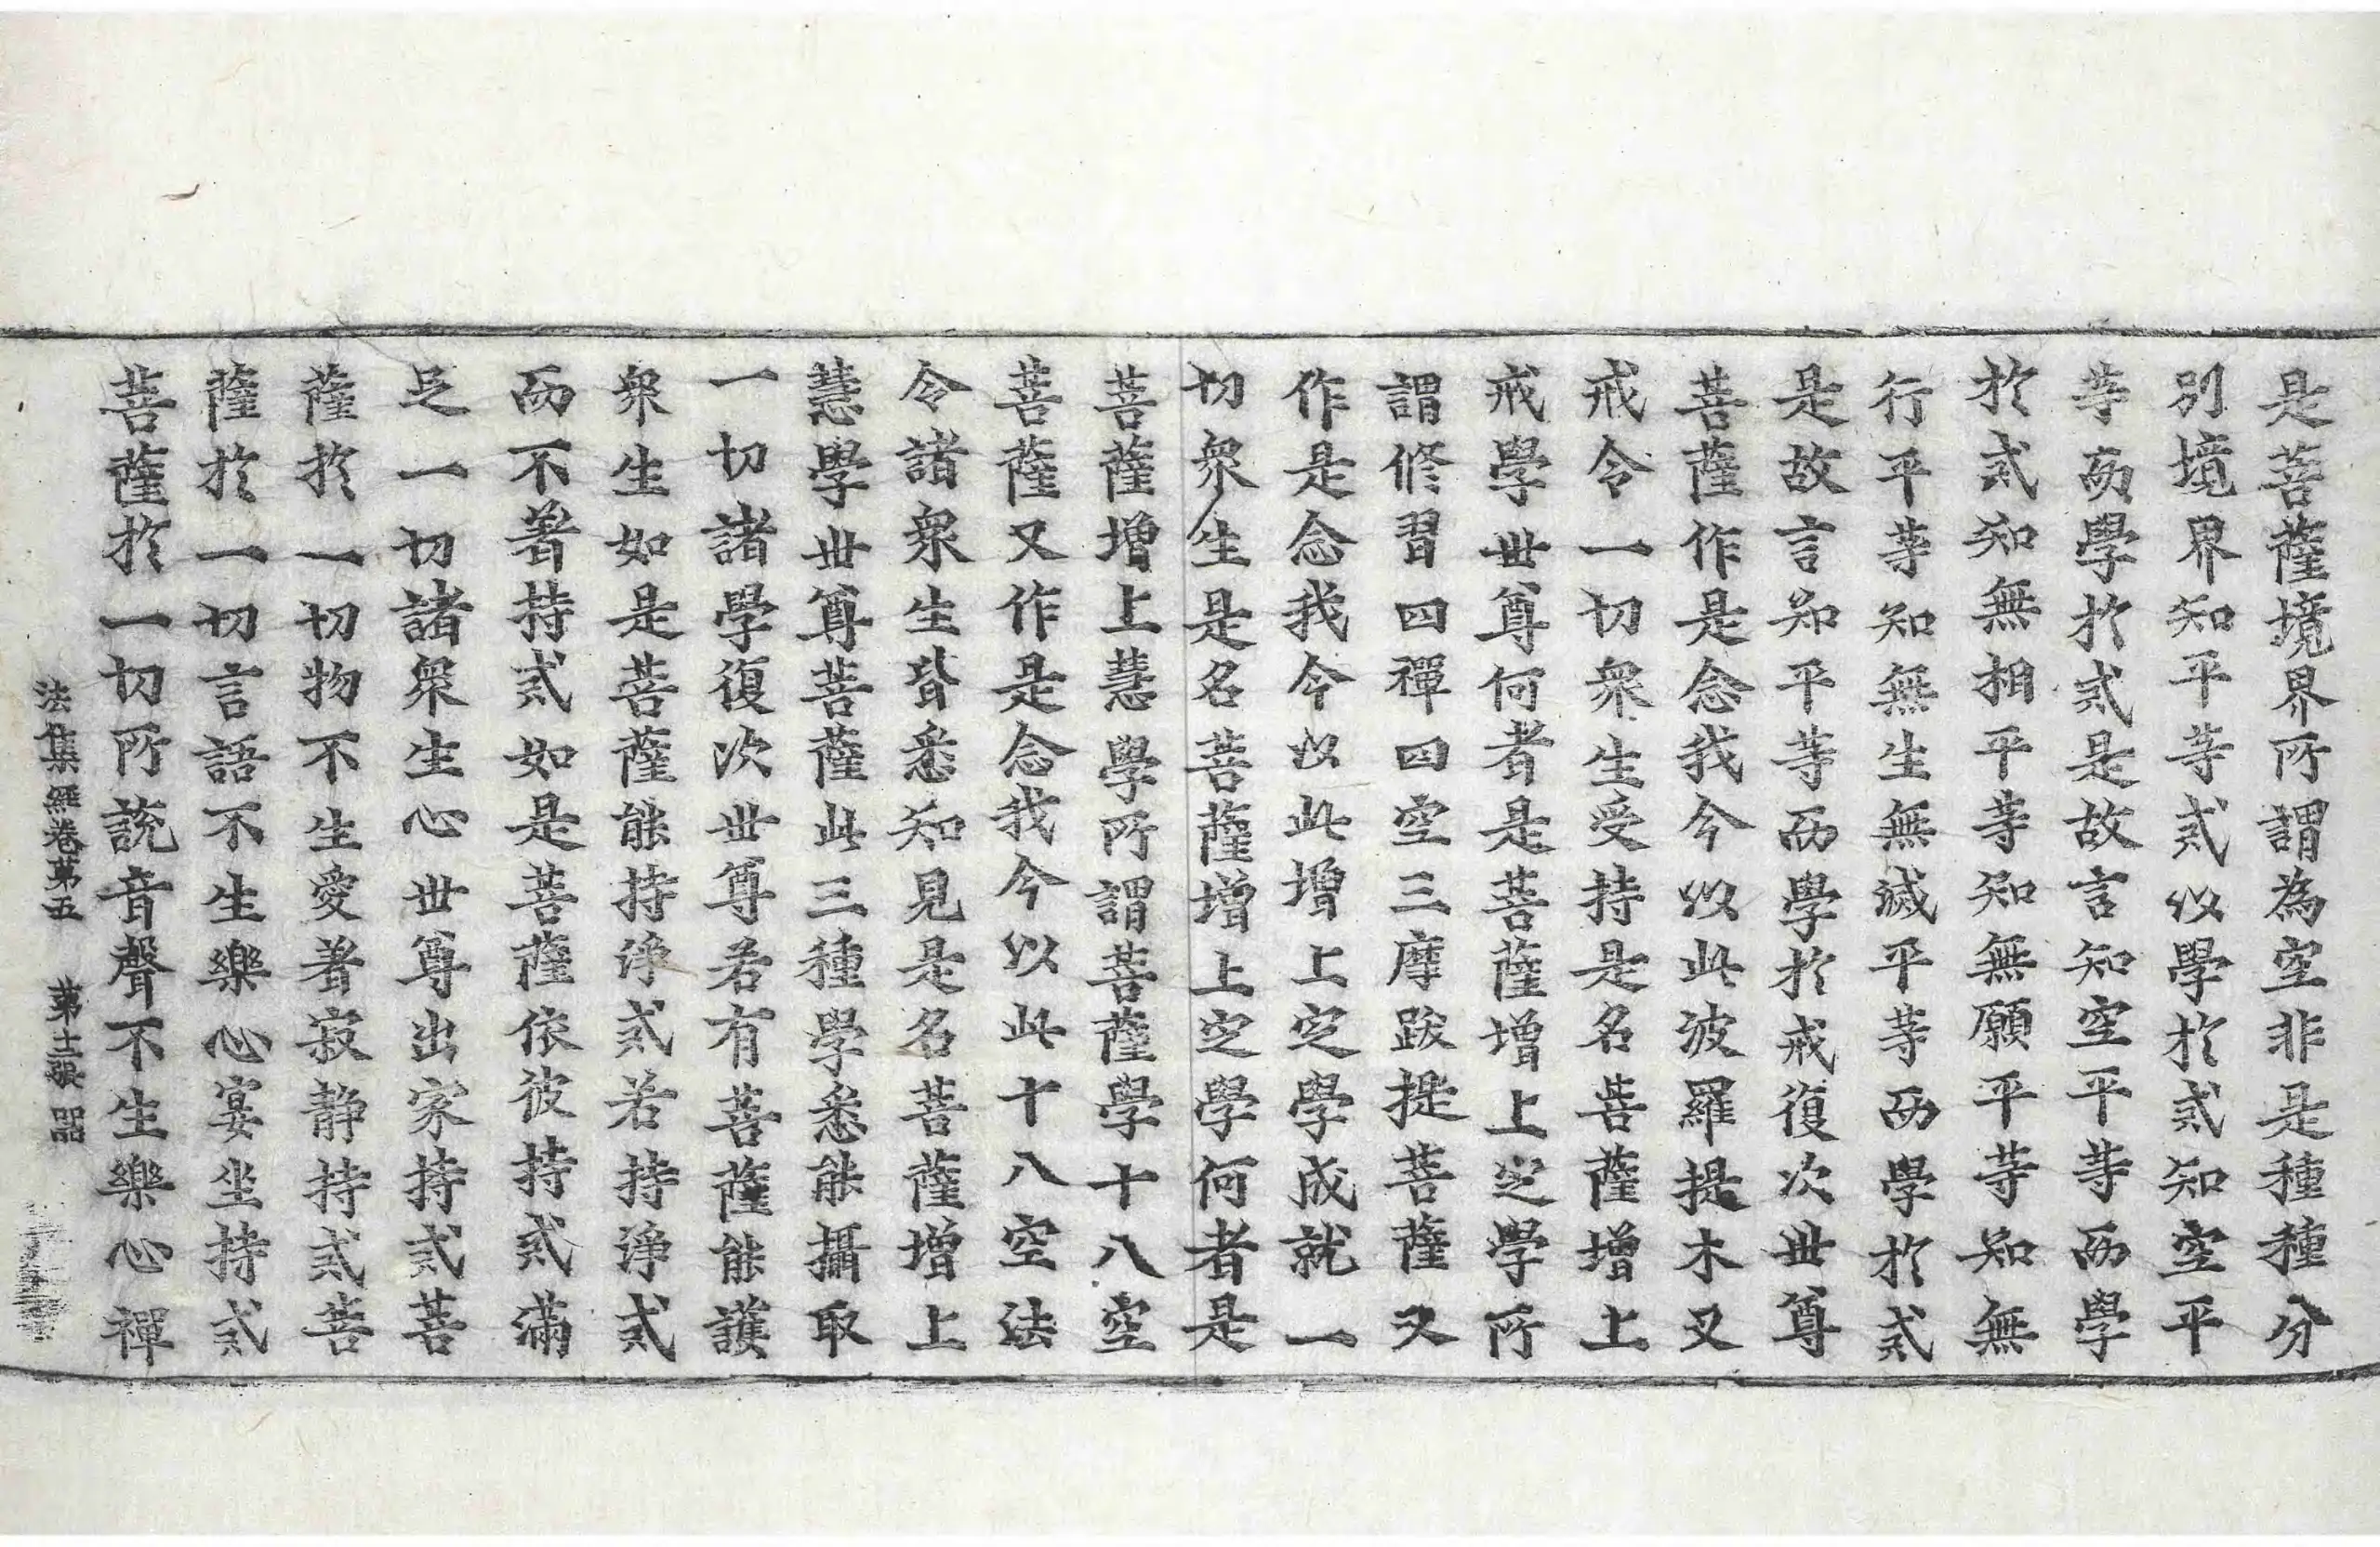 是菩薩境界所謂為空非是種種分
別境界知平等戒以學於戒知空平
等而學於戒是故言知空平等而學
於戒知無相平等知無願平等知無
行平等知無生無滅平等而學於戒
是故言知平等而學於戒復次世尊
菩薩作是念我今以此波羅提木叉
戒令一切衆生受持是名菩薩增上
戒學世尊何者是菩薩增上定學所
謂修習四禪四空三摩跋提菩薩又
作是念我今以此增上定學成就一
切衆生是名菩薩增上定學何者是
菩薩增上慧學所謂菩薩學十八空
菩薩又作是念我今以此十八空法
令諸衆生皆悉知見是名菩薩增上
慧學世尊菩薩此三種學悉能攝取
一切諸學復次世尊若有菩薩能護
衆生如是菩薩能持淨戒若持淨戒
而不著持戒如是菩薩依彼持戒滿
足一切諸衆生心世尊出家持戒菩
薩於一切物不生愛著寂靜持戒菩
薩於一切言語不生樂心宴坐持戒
菩薩於一切所說音聲不生樂心禪
法集經卷第五 第十二張 噐